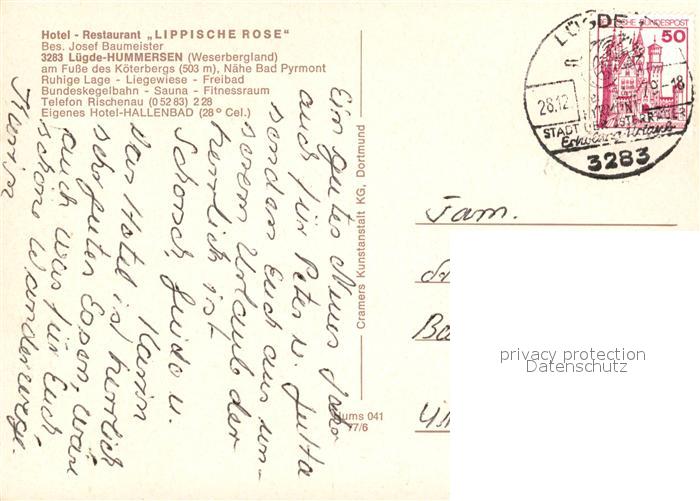 Hotel - Restaurant „LIPPISCHE ROSE"
Bes. Josef Baumeister
3283 Lügde-HUMMERSEN (Weserbergland)
am Fuße des Köterbergs (503 m), Nähe Bad Pyrmont
Ruhige Lage - Liegewiese - Freibad
Bundeskegelbahn - Sauna - Fitnessraum
Telefon Rischenau (0 52 83) 2 28
Eigenes Hotel-HALLENBAD (28° Cel.)
Ein gutes Neues Jahr
auch für Peter u. Jutta
senden Euch aus un-
serem Urlaub der
herrlich ist
Schorsch, Guido u.
Karin
Das Hotel ist herrlich
sehr gutes Essen, wäre
auch was für Euch
schöne Wanderwege.
Karin
Cramers Kunstanstalt KG, Dortmund
Hums 041
77/6
LÜGDE 1
28.12
-18
STADT DER OSTERRÄDER
Erholung Urlaub
3283
DEUTSCHE BUNDESPOST
50
Fam.
Ba
privacy protection
Datenschutz